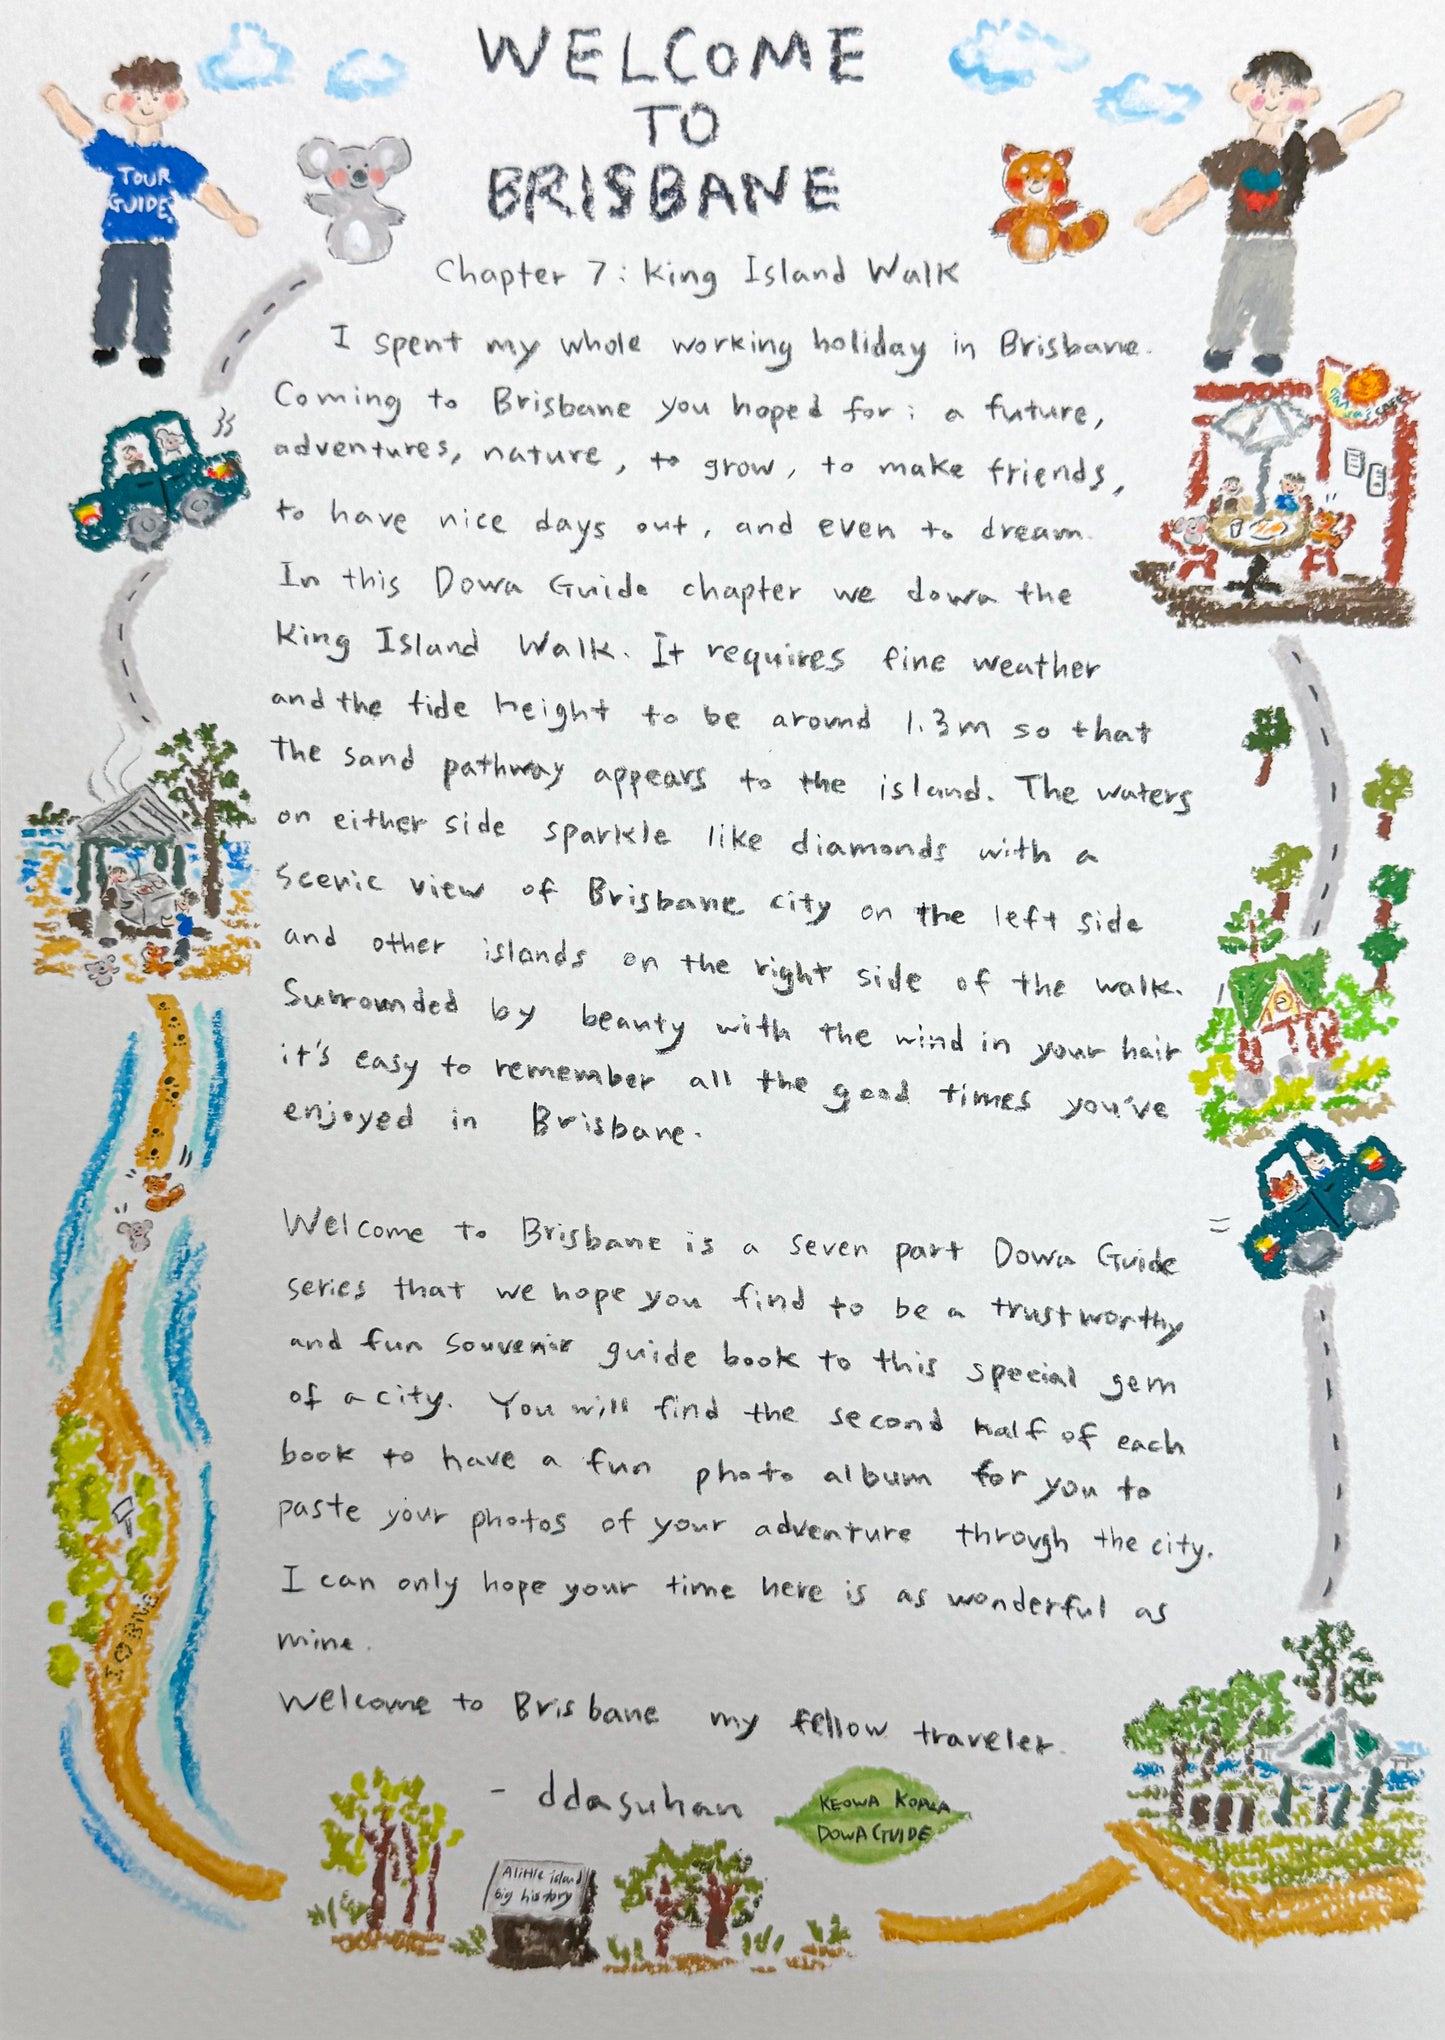 WELCOME
TO
BRISBANE
TOUR
GUIDE
Chapter 7: King Island Walk
I spent my whole working holiday in Brisbane.
Coming to Brisbane you hoped for: a future,
adventures, nature, to grow, to make friends,
to have nice days out, and even to dream.
In this Dowa Guide chapter we dowa the
King Island Walk. It requires fine weather
and the tide height to be around 1.3m so that
the sand pathway appears to the island. The waters
on either side sparkle like diamonds with a
scenic view of Brisbane city on the left side
and other islands on the right side of the walk.
Surrounded by beauty with the wind in your hair
it's easy to remember all the good times you've
enjoyed in Brisbane.
Welcome to Brisbane is a seven part Dowa Guide
series that we hope you find to be a trustworthy
and fun souvenir guide book to this special gem
of a city. You will find the second half of each
book to have a fun photo album for you to
paste your photos of your adventure through the city.
I can only hope your time here is as wonderful as
mine.
Welcome to Brisbane my fellow traveler.
- ddasuhan
KEOWA KOALA
DOWA GUIDE
A little island
big history